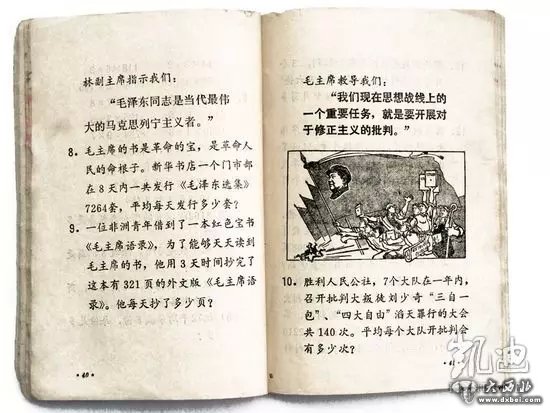 林副主席指示我们：
“毛泽东同志是当代最伟
大的马克思列宁主义者。”
8．毛主席的书是革命的宝，是革命人
民的命根子。新华书店一个门市部
在8天内一共发行《毛泽东选集》
7264套，平均每天发行多少套？
9．一位非洲青年借到了一本红色宝书
《毛主席语录》，为了能够天天读到
毛主席的书，他用3天时间抄完了
这本有321页的外文版《毛主席语
录》。他每天抄了多少页？
· 40 ·
毛主席教导我们：
“我们现在思想战线上的
一个重要任务，就是要开展对
于修正主义的批判。”
10．胜利人民公社，7个大队在一年内，
召开批判大叛徒刘少奇“三自一
包”、“四大自由”滔天罪行的大会
共140次。平均每个大队开批判会
有多少次？
凯迪
www.dxbei.com